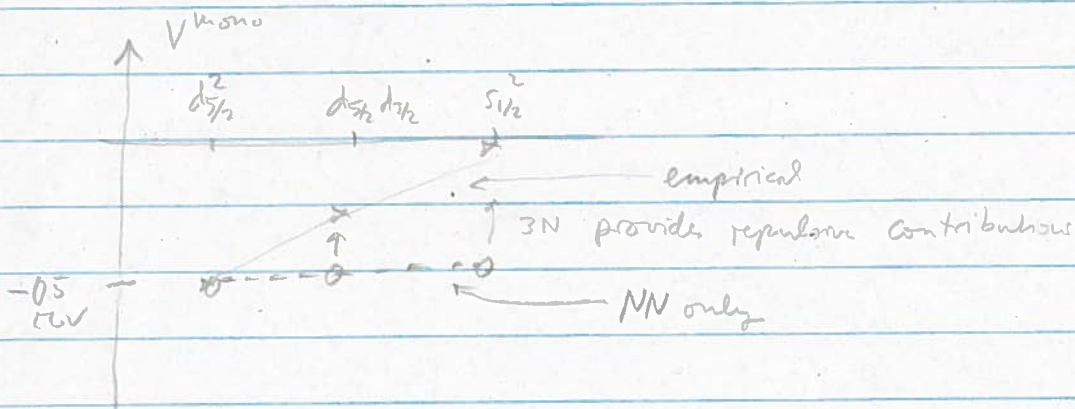 V mono
d²5/2 d5/2 d3/2 s²1/2
empirical
3N provides repulsive contributions
-0.5
MeV
NN only